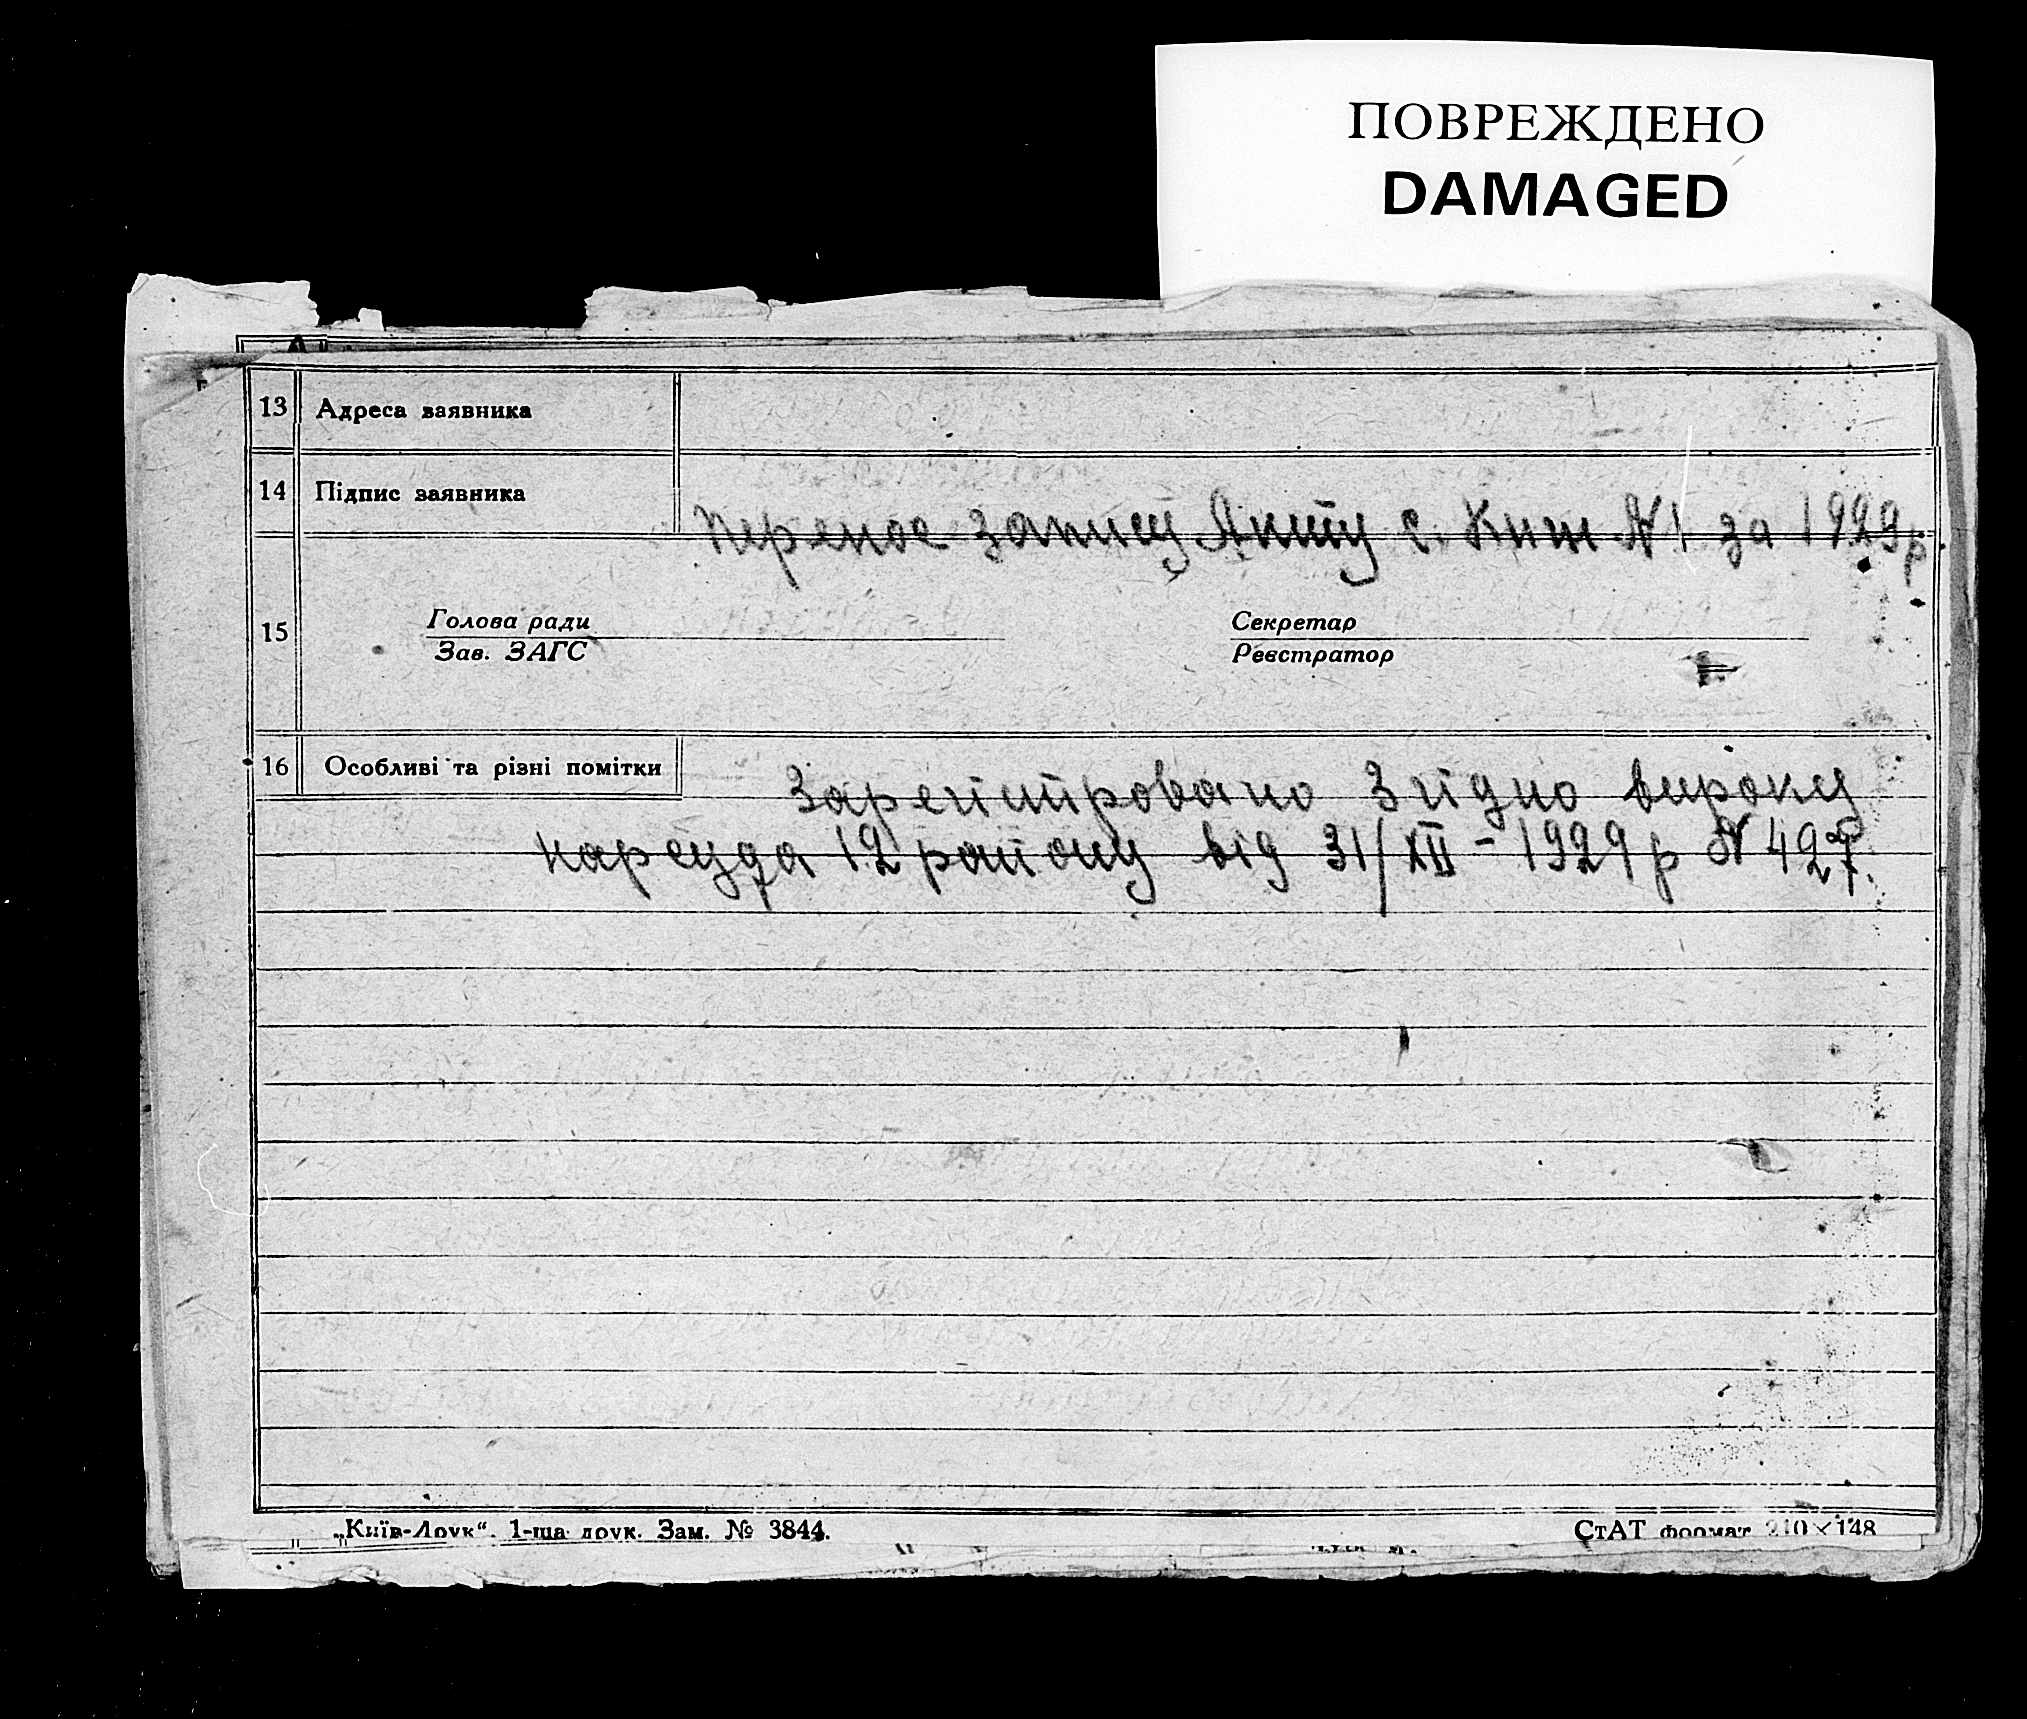 ПОВРЕЖДЕНО
DAMAGED
13 Адреса заявника
14 Підпис заявника
перенос запису Акту с. Книж №1 за 1929 р.
15
Голова ради
Зав. ЗАГС
Секретар
Реєстратор
16 Особливі та різні помітки
Зарегистровано Згідно вироку
нарсуда 12 району від 31/XII - 1929 р № 427.
„Київ-Друк“. 1-ша друк. Зам. № 3844.
СтАТ формат 210×148